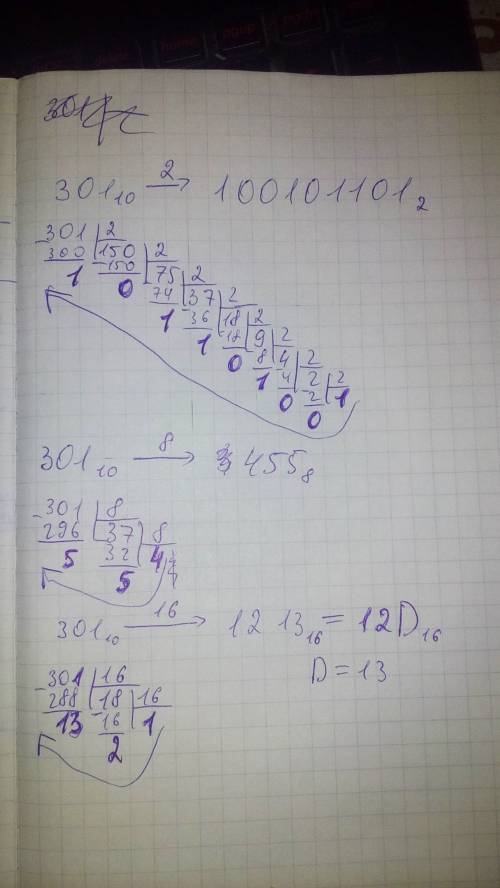 301₁₀ →² 100101101₂
301 | 2
300 | 150 | 2
1 150 | 75 | 2
0 74 | 37 | 2
1 36 | 18 | 2
1 18 | 9 | 2
0 8 | 4 | 2
1 4 | 2 | 2
0 2 | 1
0
301₁₀ →⁸ 455₈
301 | 8
296 | 37 | 8
5 32 | 4
5
301₁₀ →¹⁶ 12 13₁₆ = 12D₁₆
D = 13
301 | 16
288 | 18 | 16
13 16 | 1
2